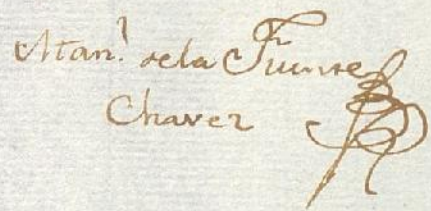 Man.l de la Fuente
Chavez